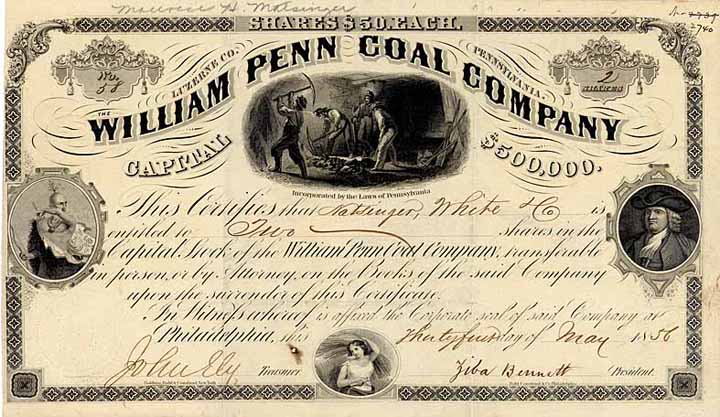 Maurice H. Matsinger
SHARES $50. EACH.
2740
No.
58
LUZERNE CO.
PENNSYLVANIA.
2
SHARES
THE
WILLIAM PENN COAL COMPANY
CAPITAL
$500,000.
Incorporated by the Laws of Pennsylvania
This Certifies that Natsinger, White & Co is
entitled to Two shares in the
Capital Stock of the William Penn Coal Company, transferable
in person, or by Attorney, on the Books of the said Company
upon the surrender of this Certificate.
In Witness whereof is affixed the Corporate seal of said Company at
Philadelphia, this Thirtyfirst day of May 1856
John Ely Treasurer Ziba Bennett President.